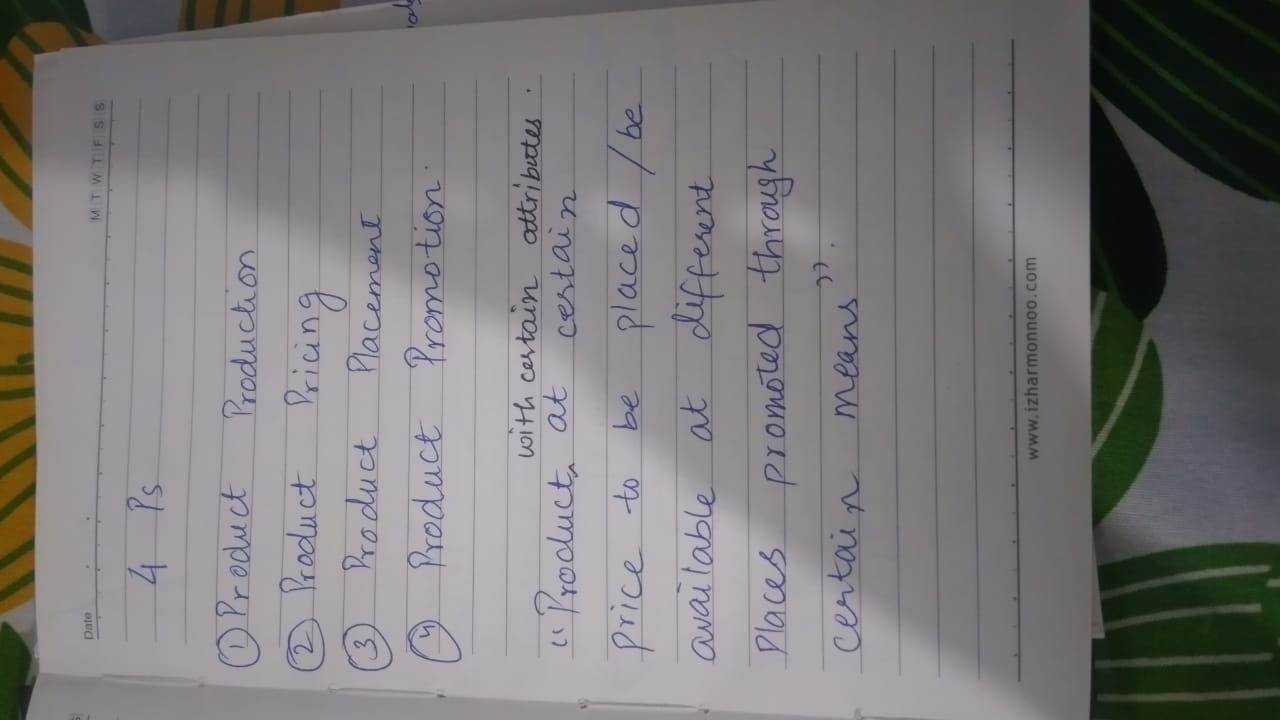 Date
M T W T F S S
4 Ps
① Product Production
② Product Pricing
③ Product Placement
④ Product Promotion.
with certain attributes.
"Product‸ at certain
price to be placed / be
available at different
Places promoted through
certain means".
www.izharmonnoo.com